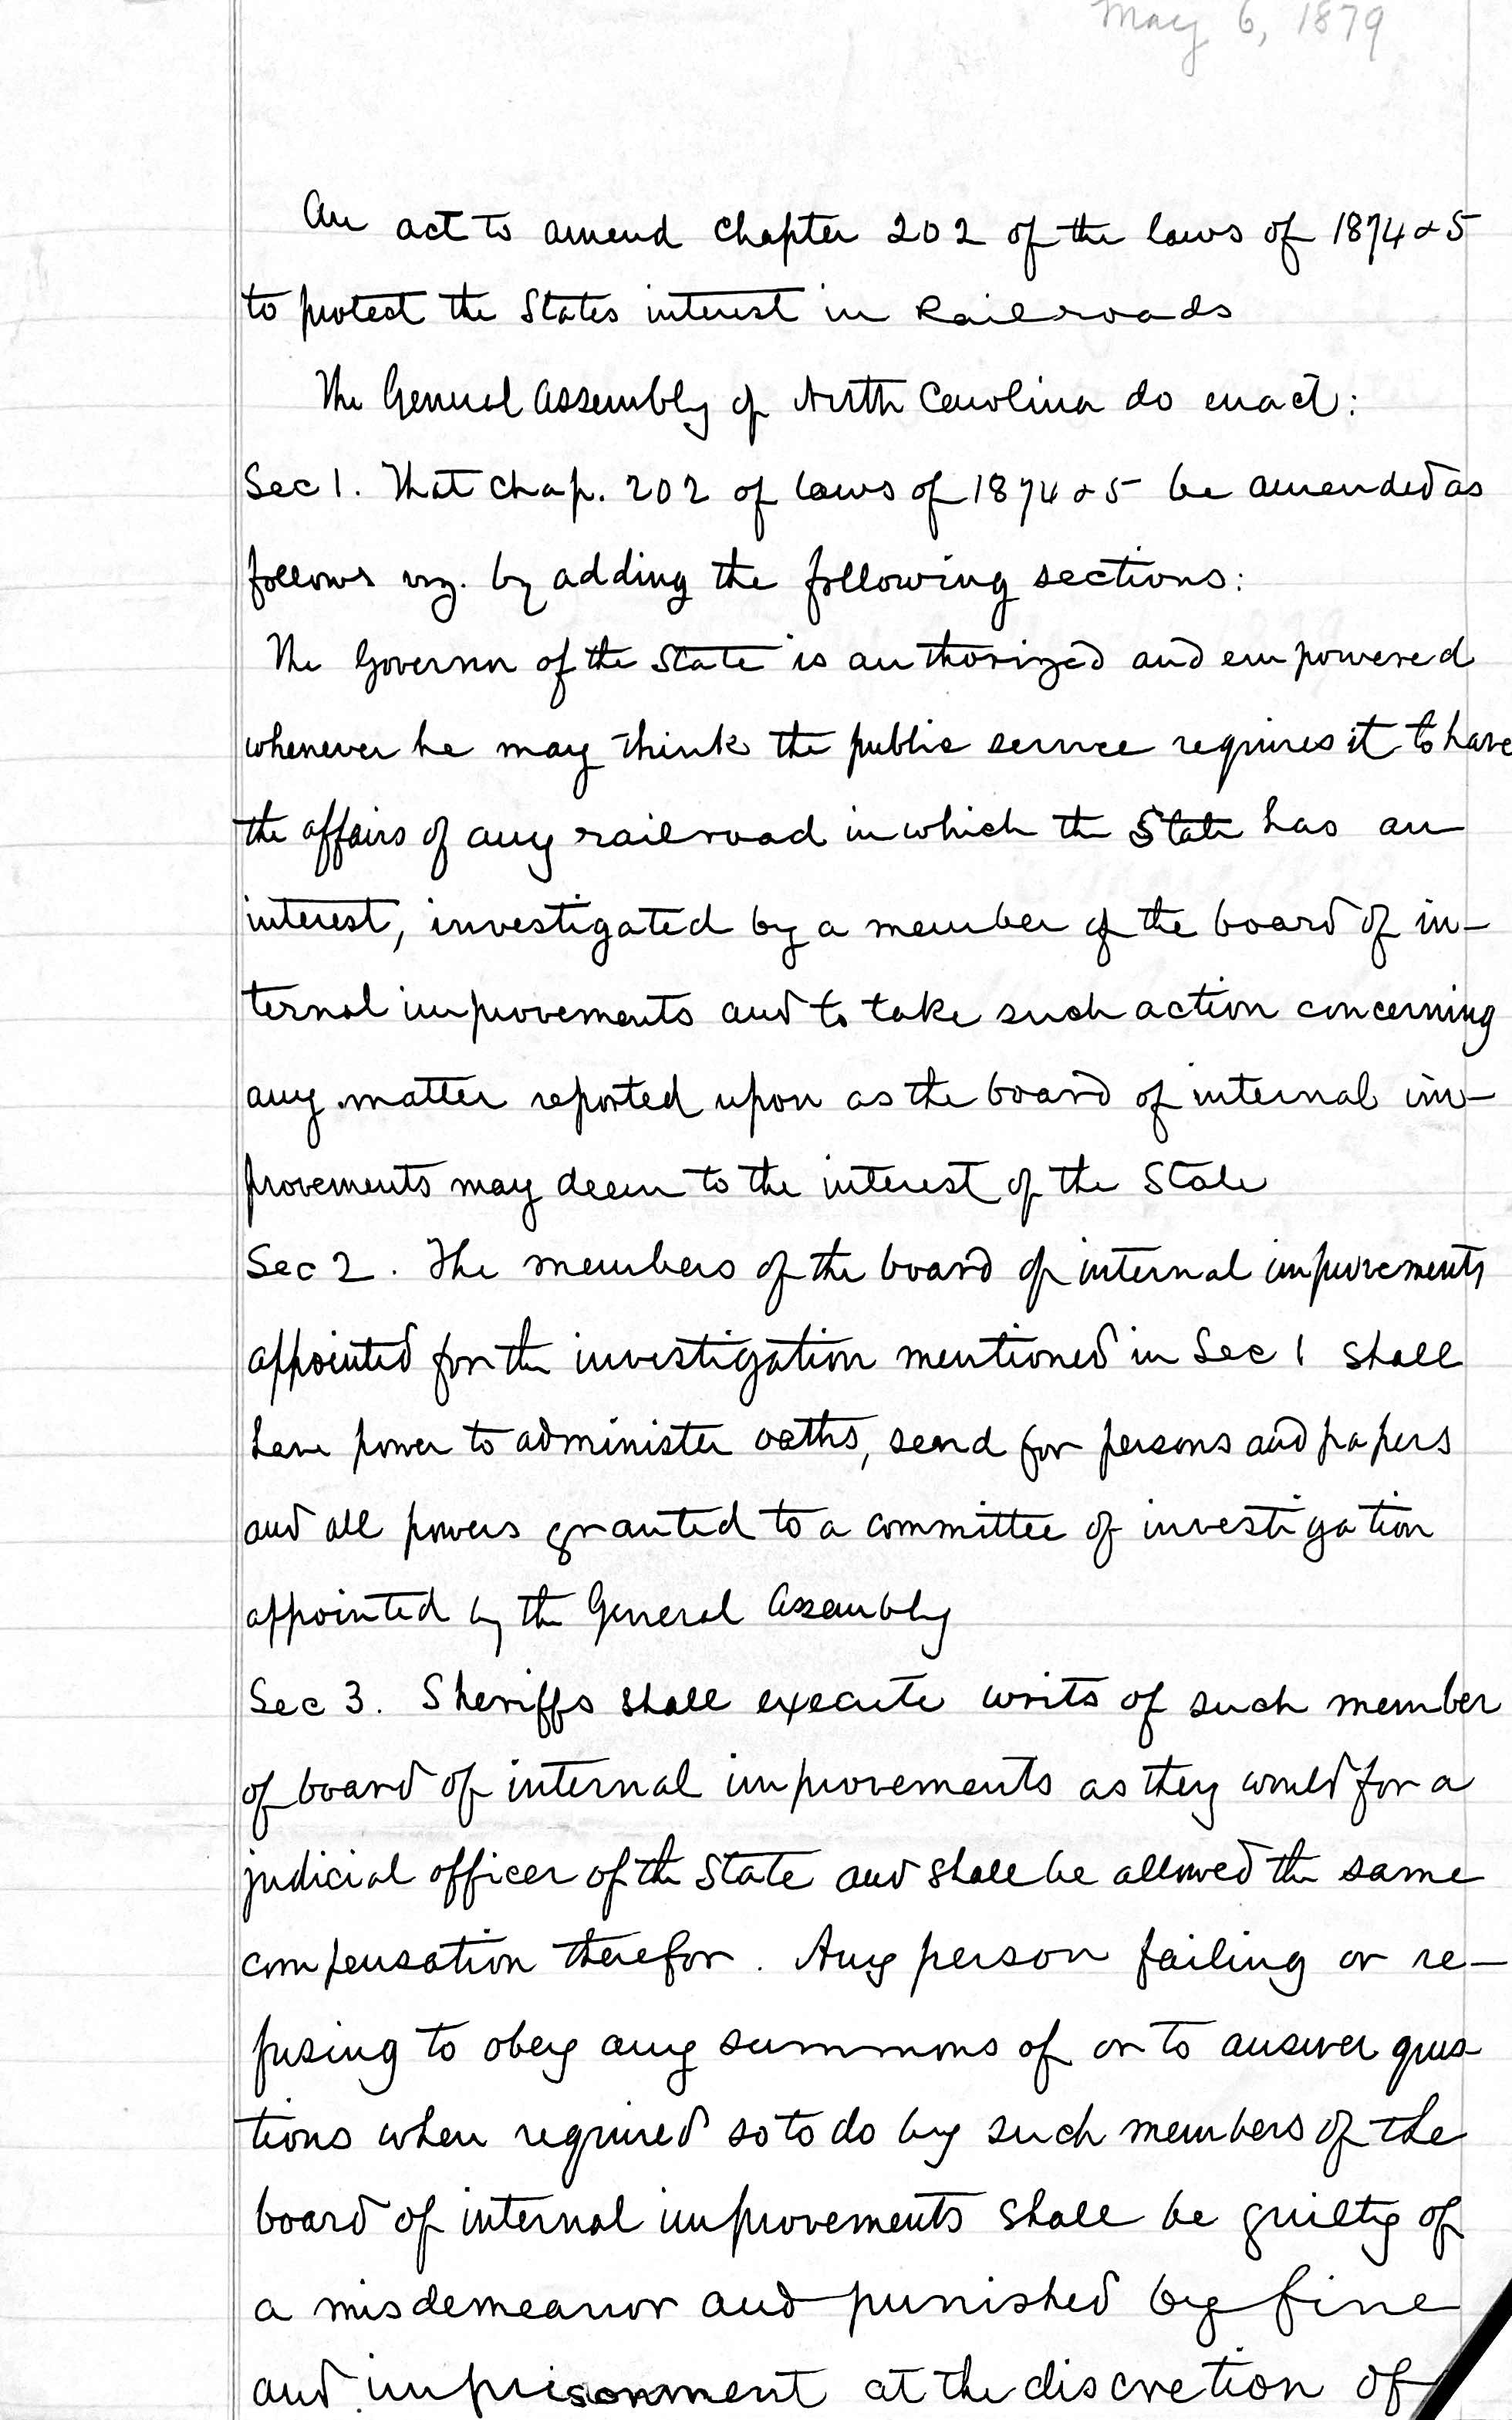 May 6, 1879
An act to amend Chapter 202 of the laws of 1874 & 5
to protect the States interest in Railroads
The General Assembly of North Carolina do enact:
Sec 1. That Chap. 202 of laws of 1874 & 5 be amended as
follows viz. by adding the following sections:
The Governor of the State is authorized and empowered
whenever he may think the public service requires it to have
the affairs of any railroad in which the State has an
interest, investigated by a member of the board of in-
ternal improvements and to take such action concerning
any matter reported upon as the board of internal im-
provements may deem to the interest of the State
Sec 2. The members of the board of internal improvements
appointed for the investigation mentioned in Sec 1 shall
have power to administer oaths, send for persons and papers
and all powers granted to a committee of investigation
appointed by the General Assembly
Sec 3. Sheriffs shall execute writs of such member
of board of internal improvements as they would for a
judicial officer of the State and shall be allowed the same
compensation therefor. Any person failing or re-
fusing to obey any summons of or to answer ques-
tions when required so to do by such members of the
board of internal improvements shall be guilty of
a misdemeanor and punished by fine
and imprisonment at the discretion of